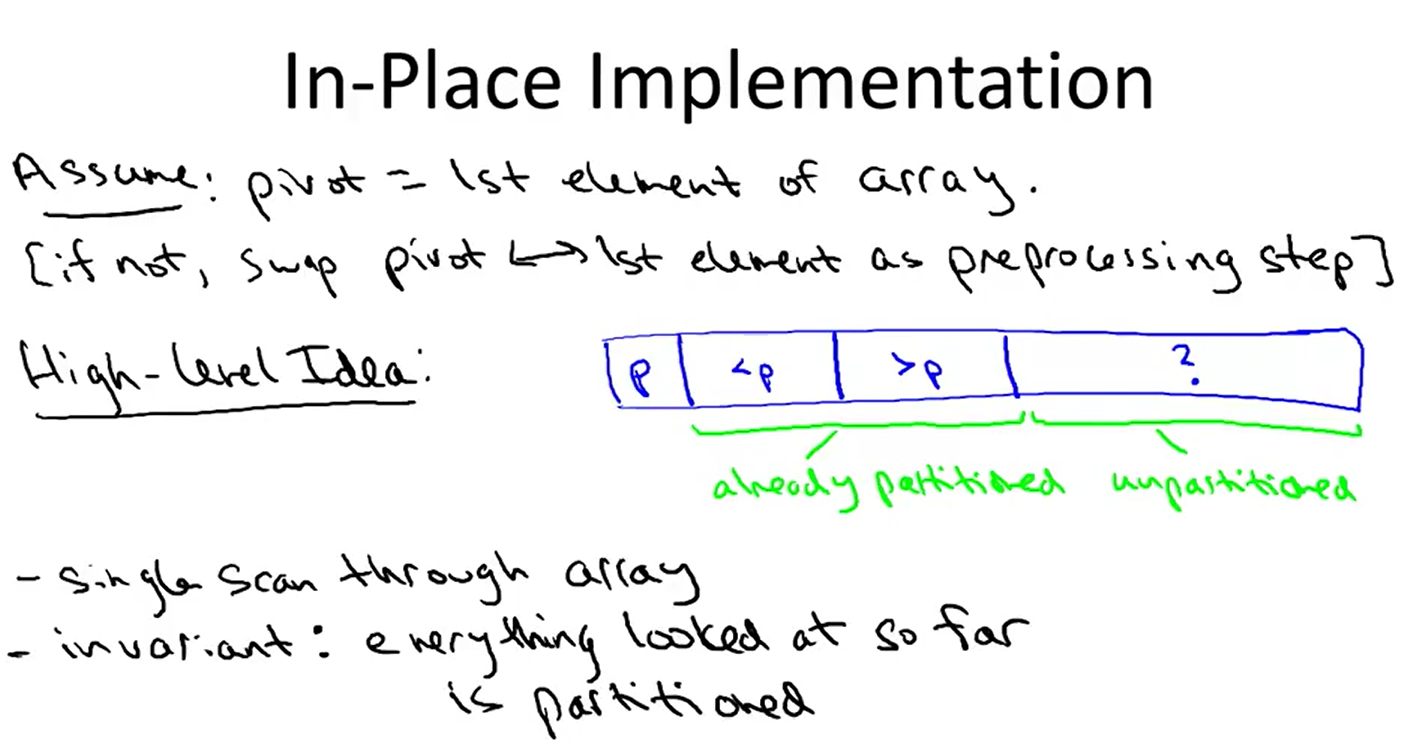 In-Place Implementation
Assume: pivot = 1st element of array.
[if not, swap pivot ↔ 1st element as preprocessing step]
High-level Idea:
p <p >p ?
already partitioned unpartitioned
- single scan through array
- invariant: everything looked at so far
is partitioned